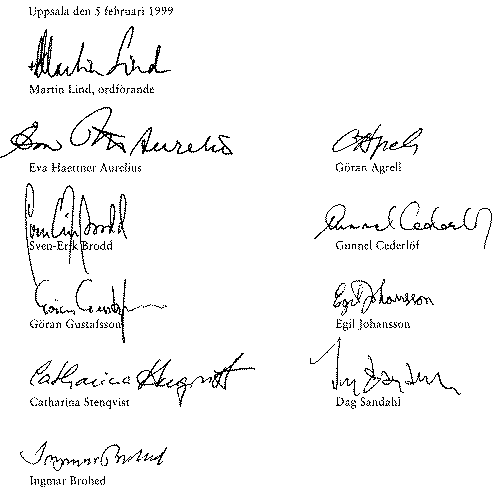 Uppsala den 5 februari 1999
Martin Lind
Martin Lind, ordförande
Eva Haettner Aurelius
Göran Agrell
Sven-Erik Brodd
Sven-Erik Brodd
Gunnel Cederlöf
Gunnel Cederlöf
Göran Gustafsson
Göran Gustafsson
Egil Johansson
Egil Johansson
Catharina Stenqvist
Catharina Stenqvist
Dag Sandahl
Ingmar Brohed
Ingmar Brohed